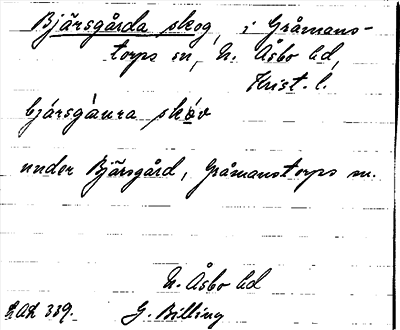 Bjärsgårda skog, i Gråmans-
torps sn, N. Åsbo hd,
Krist. l.
bjársgàura skóv
under Bjärsgård, Gråmanstorps sn.
N. Åsbo hd
LAL 339. G. Billing